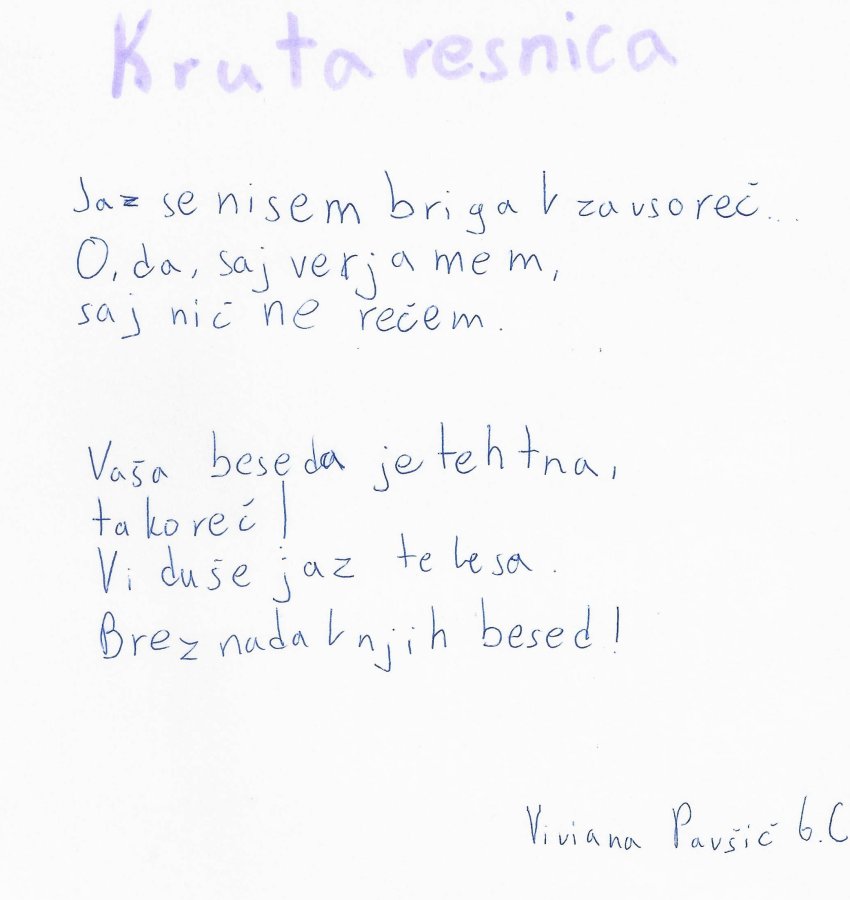 Kruta resnica
Jaz se nisem brigal za vso reč...
O, da, saj verjamem,
saj nič ne rečem.
Vaša beseda je tehtna,
tako reč!
Vi duše jaz telesa.
Brez nadalnjih besed!
Viviana Pavšič 6.C